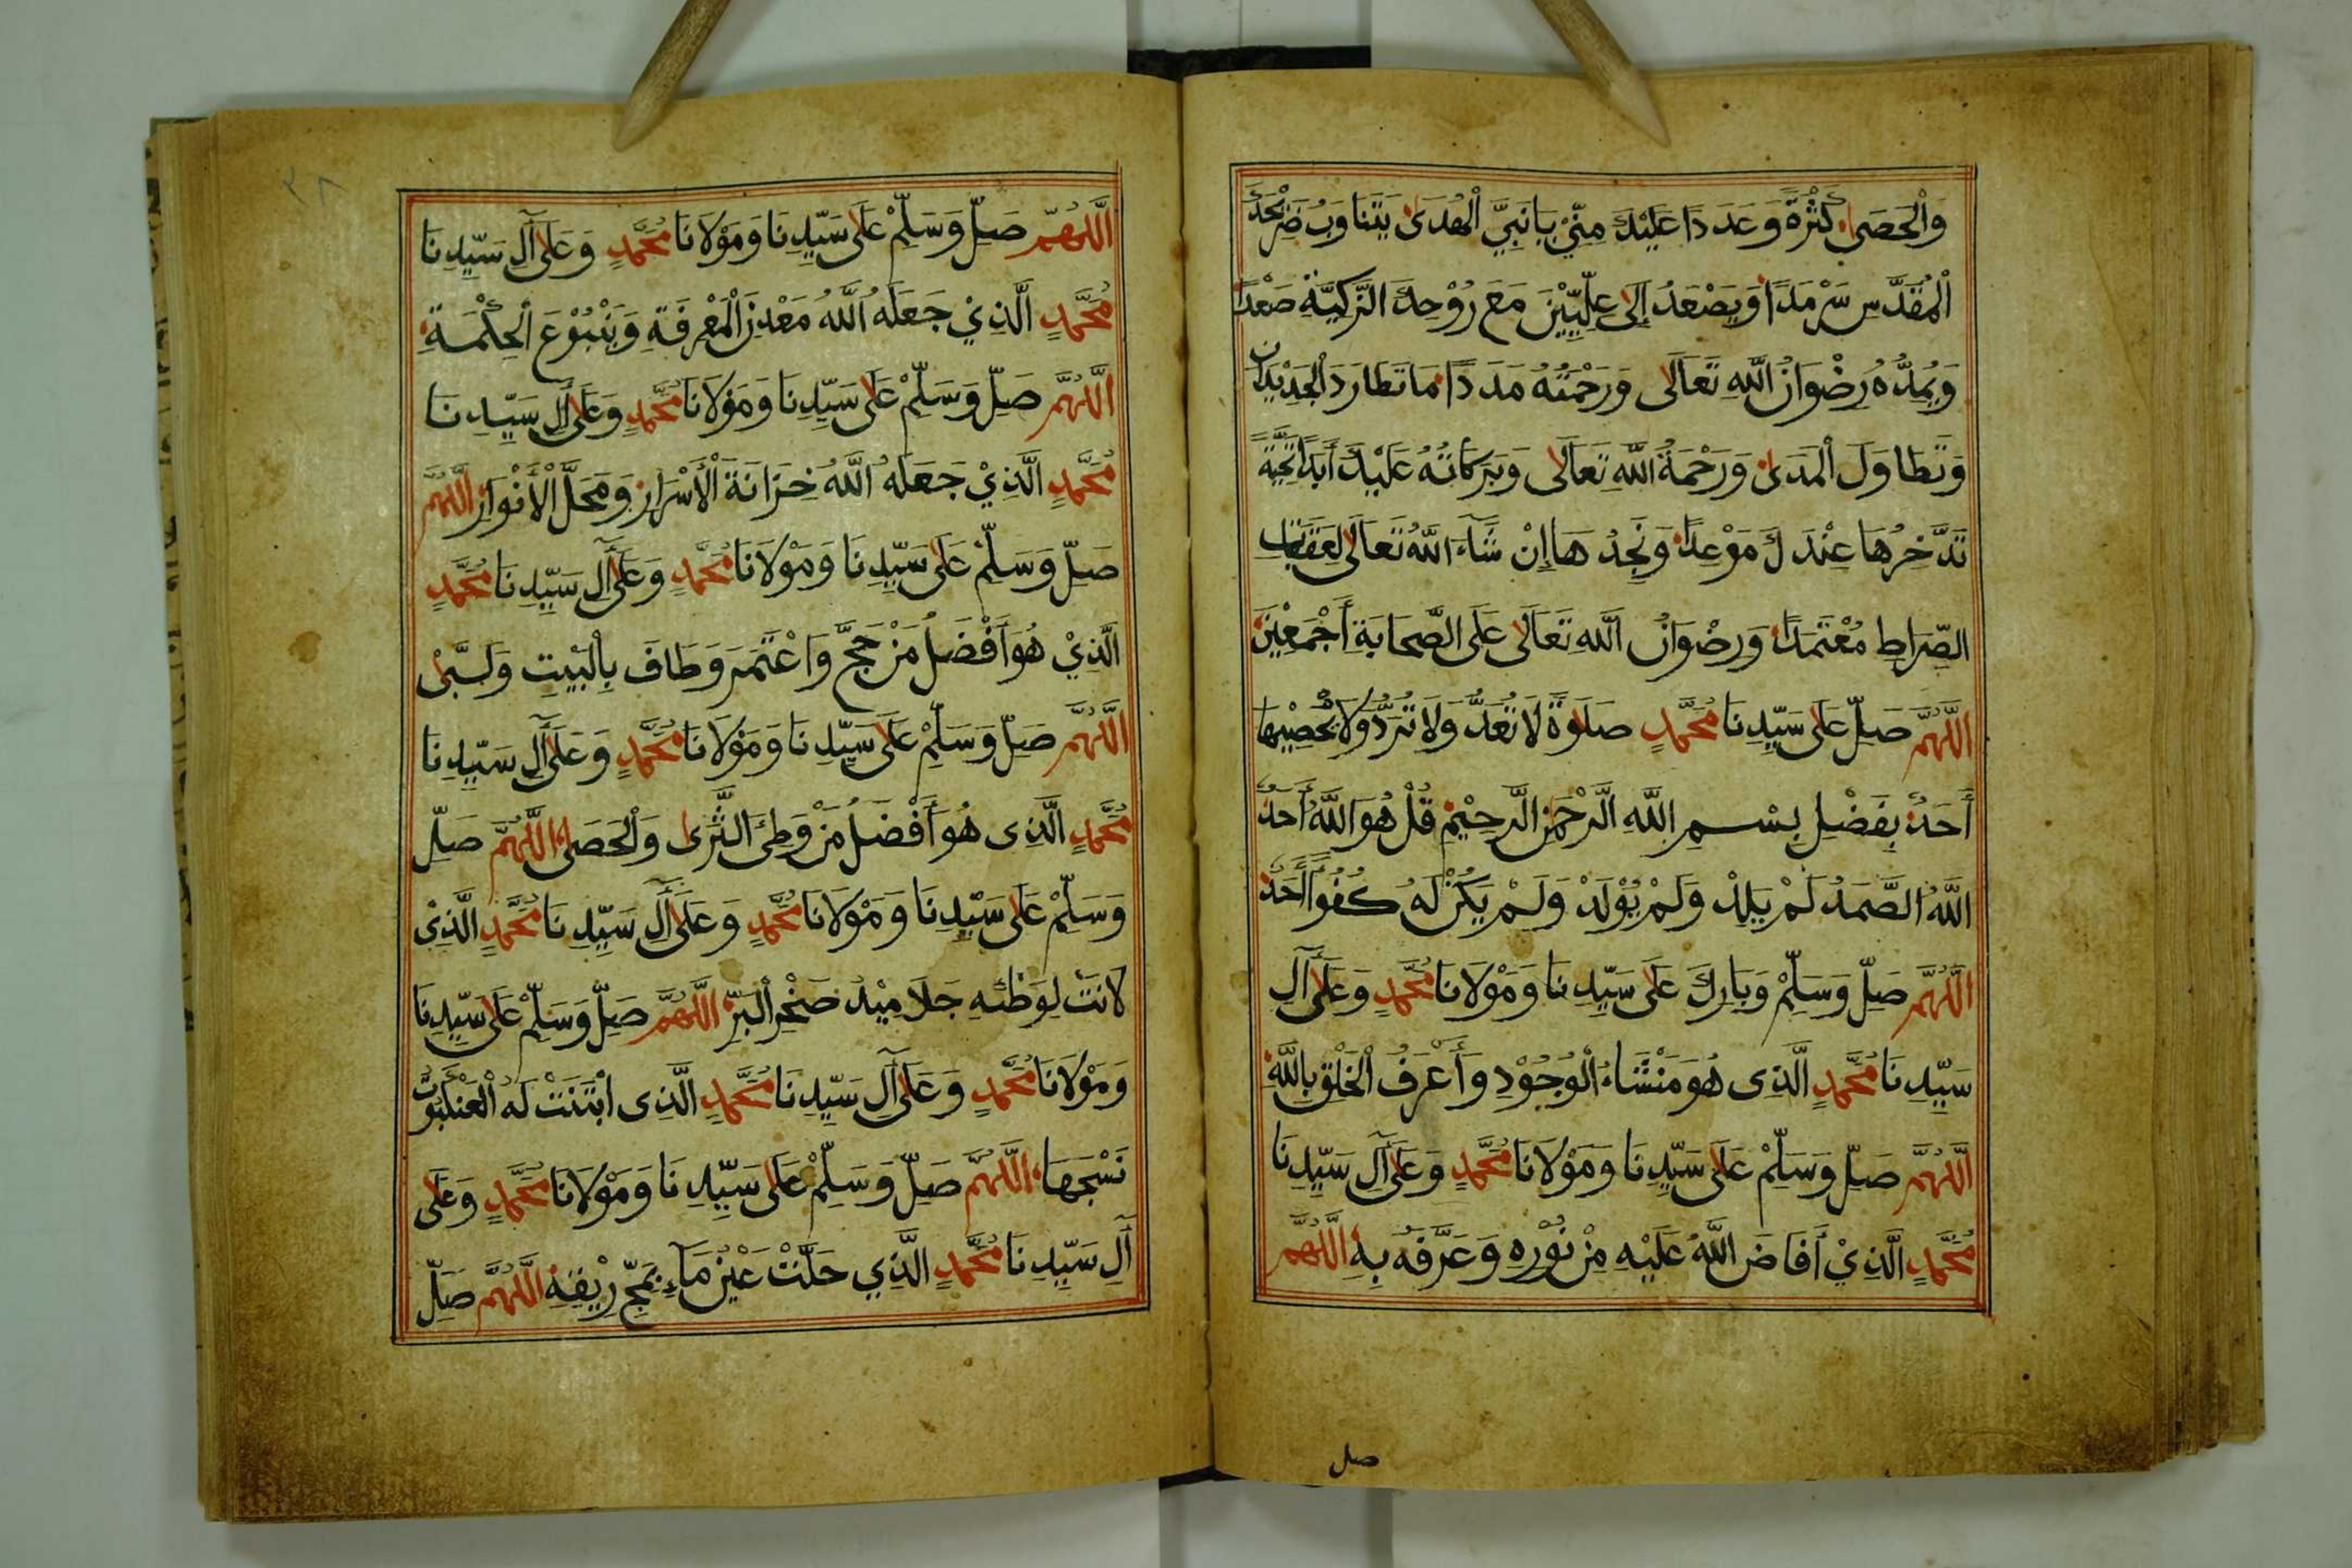 وَالْحَصٰى كَثْرَةً وَعَدَدًا عَلَيْكَ مِنِّيْ يَا نَبِيَّ الْهُدَىٰ يَتَنَاوَبُ ضَرِيْحَكَ
الْمُقَدَّسِ سَرْمَدًا وَيَصْعَدُ إِلَى عِلِّيِّيْنَ مَعَ رُوْحِكَ الزَّكِيَّةِ صَعْدًا
وَيُمِدُّهُ رِضْوَانُ اللَّهِ تَعَالَى وَرَحْمَتُهُ مَدَدًا مَا تَطَارَدَ الْجَدِيْدَانِ
وَتَطَاوَلَ الْمَدَىٰ وَرَحْمَةُ اللَّهِ تَعَالَى وَبَرَكَاتُهُ عَلَيْكَ أَبَدًا تَحِيَّةً
تَدَّخِرُهَا عِنْدَكَ مَوْعِدًا وَنَجِدُهَا إِنْ شَآءَ اللَّهُ تَعَالَى لِعَقَبَاتِ
الصِّرَاطِ مُعْتَمَدًا وَرِضْوَانُ اللَّهِ تَعَالَى عَلَى الصَّحَابَةِ أَجْمَعِيْنَ
اللَّهُمَّ صَلِّ عَلَى سَيِّدِنَا مُحَمَّدٍ صَلٰوةً لَا تُعَدُّ وَلَا تُرَدُّ وَلَا يُحْصِيْهَا
أَحَدٌ بِفَضْلِ بِسْمِ اللَّهِ الرَّحْمٰنِ الرَّحِيْمِ قُلْ هُوَ اللَّهُ أَحَدٌ
اللَّهُ الصَّمَدُ لَمْ يَلِدْ وَلَمْ يُوْلَدْ وَلَمْ يَكُنْ لَهُ كُفُوًا أَحَدٌ
اللَّهُمَّ صَلِّ وَسَلِّمْ وَبَارِكْ عَلَى سَيِّدِنَا وَمَوْلَانَا مُحَمَّدٍ وَعَلَى آلِ
سَيِّدِنَا مُحَمَّدٍ الَّذِى هُوَ مَنْشَاءُ الْوُجُوْدِ وَأَعْرَفُ الْخَلْقِ بِاللَّهِ
اللَّهُمَّ صَلِّ وَسَلِّمْ عَلَى سَيِّدِنَا وَمَوْلَانَا مُحَمَّدٍ وَعَلَى آلِ سَيِّدِنَا
مُحَمَّدٍ الَّذِيْ أَفَاضَ اللَّهُ عَلَيْهِ مِنْ نُوْرِهِ وَعَرَّفَهُ بِهِ اللَّهُمَّ
صل
٢٨
اللَّهُمَّ صَلِّ وَسَلِّمْ عَلَى سَيِّدِنَا وَمَوْلَانَا مُحَمَّدٍ وَعَلَى آلِ سَيِّدِنَا
مُحَمَّدٍ الَّذِيْ جَعَلَهُ اللَّهُ مَعْدِنَ الْمَعْرِفَةِ وَيَنْبُوْعَ الْحِكْمَةِ
اللَّهُمَّ صَلِّ وَسَلِّمْ عَلَى سَيِّدِنَا وَمَوْلَانَا مُحَمَّدٍ وَعَلَى آلِ سَيِّدِنَا
مُحَمَّدٍ الَّذِيْ جَعَلَهُ اللَّهُ خِزَانَةَ الْأَسْرَارِ وَمَحَلَّ الْأَنْوَارِ اللَّهُمَّ
صَلِّ وَسَلِّمْ عَلَى سَيِّدِنَا وَمَوْلَانَا مُحَمَّدٍ وَعَلَى آلِ سَيِّدِنَا مُحَمَّدٍ
الَّذِيْ هُوَ أَفْضَلُ مَنْ حَجَّ وَاعْتَمَرَ وَطَافَ بِالْبَيْتِ وَلَبّٰى
اللَّهُمَّ صَلِّ وَسَلِّمْ عَلَى سَيِّدِنَا وَمَوْلَانَا مُحَمَّدٍ وَعَلَى آلِ سَيِّدِنَا
مُحَمَّدٍ الَّذِى هُوَ أَفْضَلُ مَنْ وَطِئَ الثَّرٰى وَالْحَصٰى اللَّهُمَّ صَلِّ
وَسَلِّمْ عَلَى سَيِّدِنَا وَمَوْلَانَا مُحَمَّدٍ وَعَلَى آلِ سَيِّدِنَا مُحَمَّدٍ الَّذِيْ
لَانَتْ لِوَطْئِهِ جَلَامِيْدُ صَخْرِ الْبَرِّ اللَّهُمَّ صَلِّ وَسَلِّمْ عَلَى سَيِّدِنَا
وَمَوْلَانَا مُحَمَّدٍ وَعَلَى آلِ سَيِّدِنَا مُحَمَّدٍ الَّذِى ابْتَنَتْ لَهُ الْعَنْكَبُوْتُ
نَسْجَهَا اللَّهُمَّ صَلِّ وَسَلِّمْ عَلَى سَيِّدِنَا وَمَوْلَانَا مُحَمَّدٍ وَعَلَى
آلِ سَيِّدِنَا مُحَمَّدٍ الَّذِي حَلَّتْ عَيْنُ مَآءٍ بِمَجِّ رِيْقِهِ اللَّهُمَّ صَلِّ